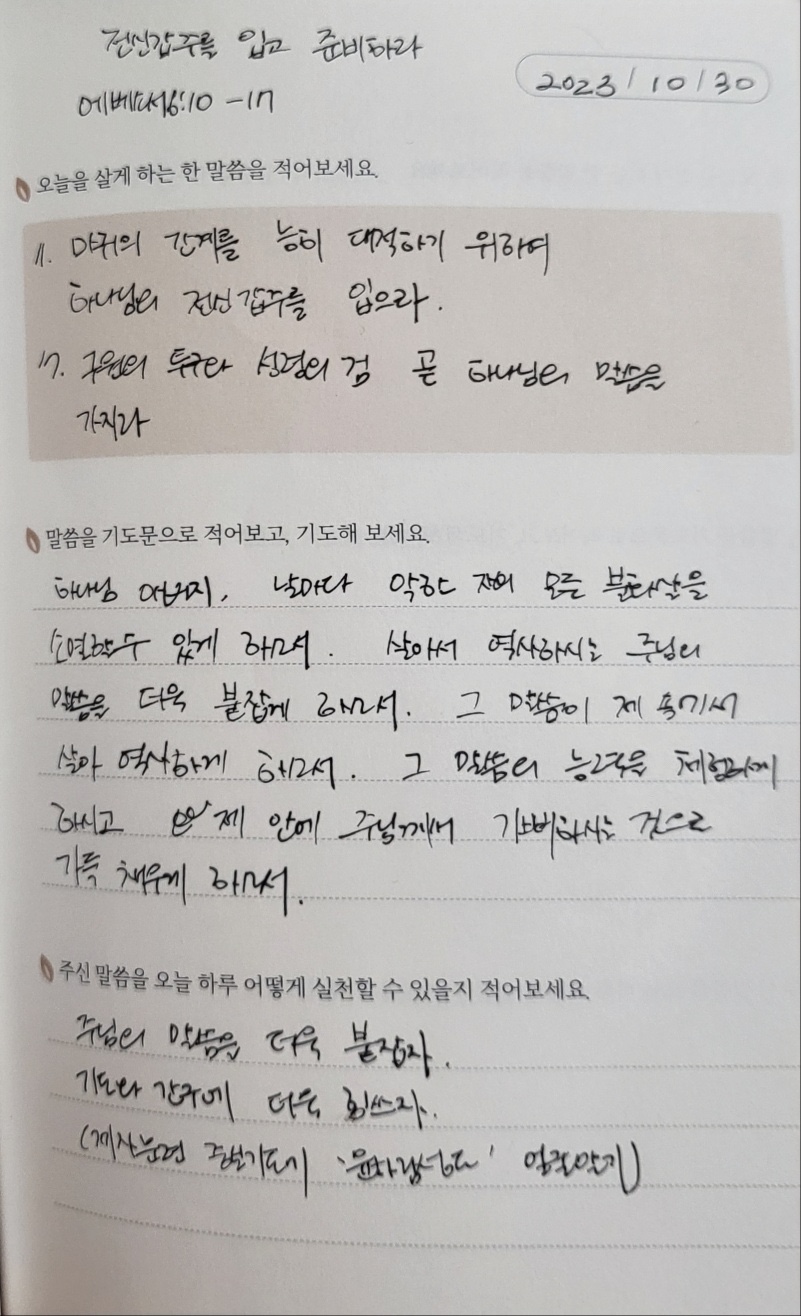 전신갑주를 입고 준비하라
2023/10/30
에베소서6:10-17
오늘을 살게 하는 한 말씀을 적어보세요.
11. 마귀의 간계를 능히 대적하기 위하여
하나님의 전신갑주를 입으라.
17. 구원의 투구와 성령의 검 곧 하나님의 말씀을
가지라
말씀을 기도문으로 적어보고, 기도해 보세요.
하나님 아버지, 날마다 악한 자의 모든 불화살을
소멸할수 있게 하소서. 살아서 역사하시는 주님의
말씀을 더욱 붙잡게 하소서. 그 말씀이 제 속에서
살아 역사하게 하소서. 그 말씀의 능력을 체험하게
하시고 제 안에 주님께서 기뻐하시는 것으로
가득 채우게 하소서.
주신 말씀을 오늘 하루 어떻게 실천할 수 있을지 적어보세요.
주님의 말씀을 더욱 붙잡자.
기도와 간구에 더욱 힘쓰자.